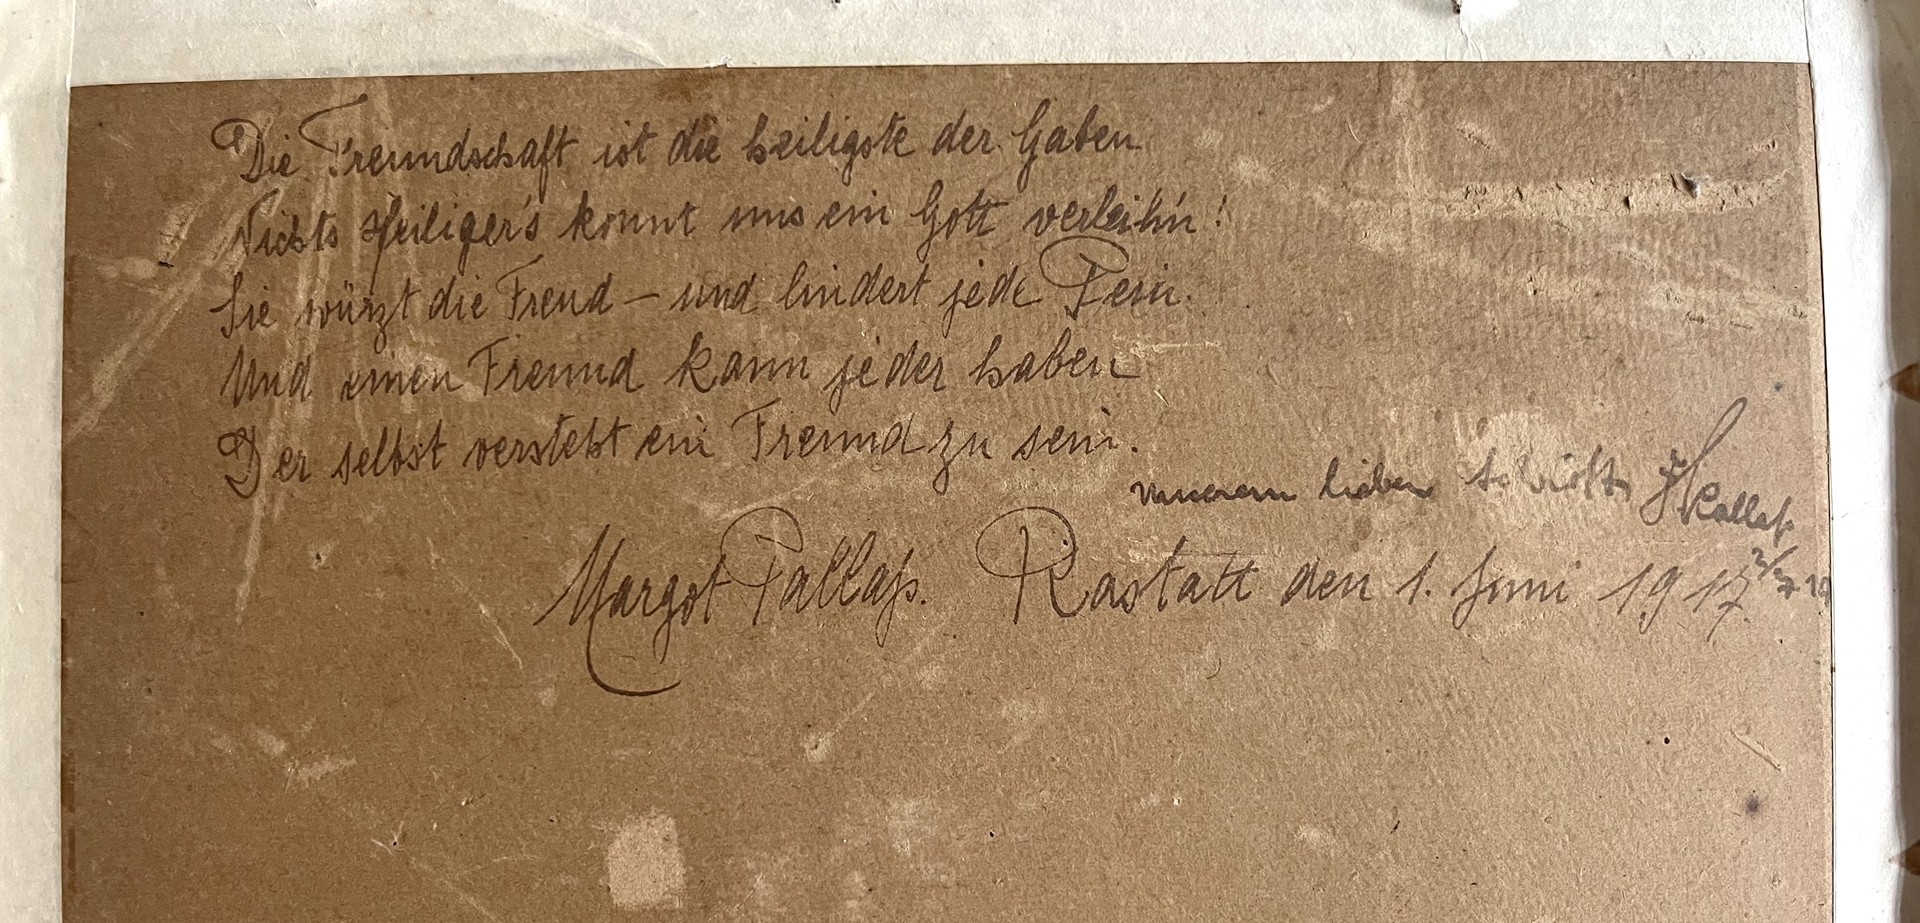 Die Freundschaft ist die heiligste der Gaben
Nichts Heiliger's konnt uns ein Gott verleih'n!
Sie würzt die Freud – und lindert jede Pein.
Und einen Freund kann jeder haben
Der selbst versteht ein Freund zu sein.
unserem lieben
Margot Pallaß. Rastatt den 1. Juni 1917.